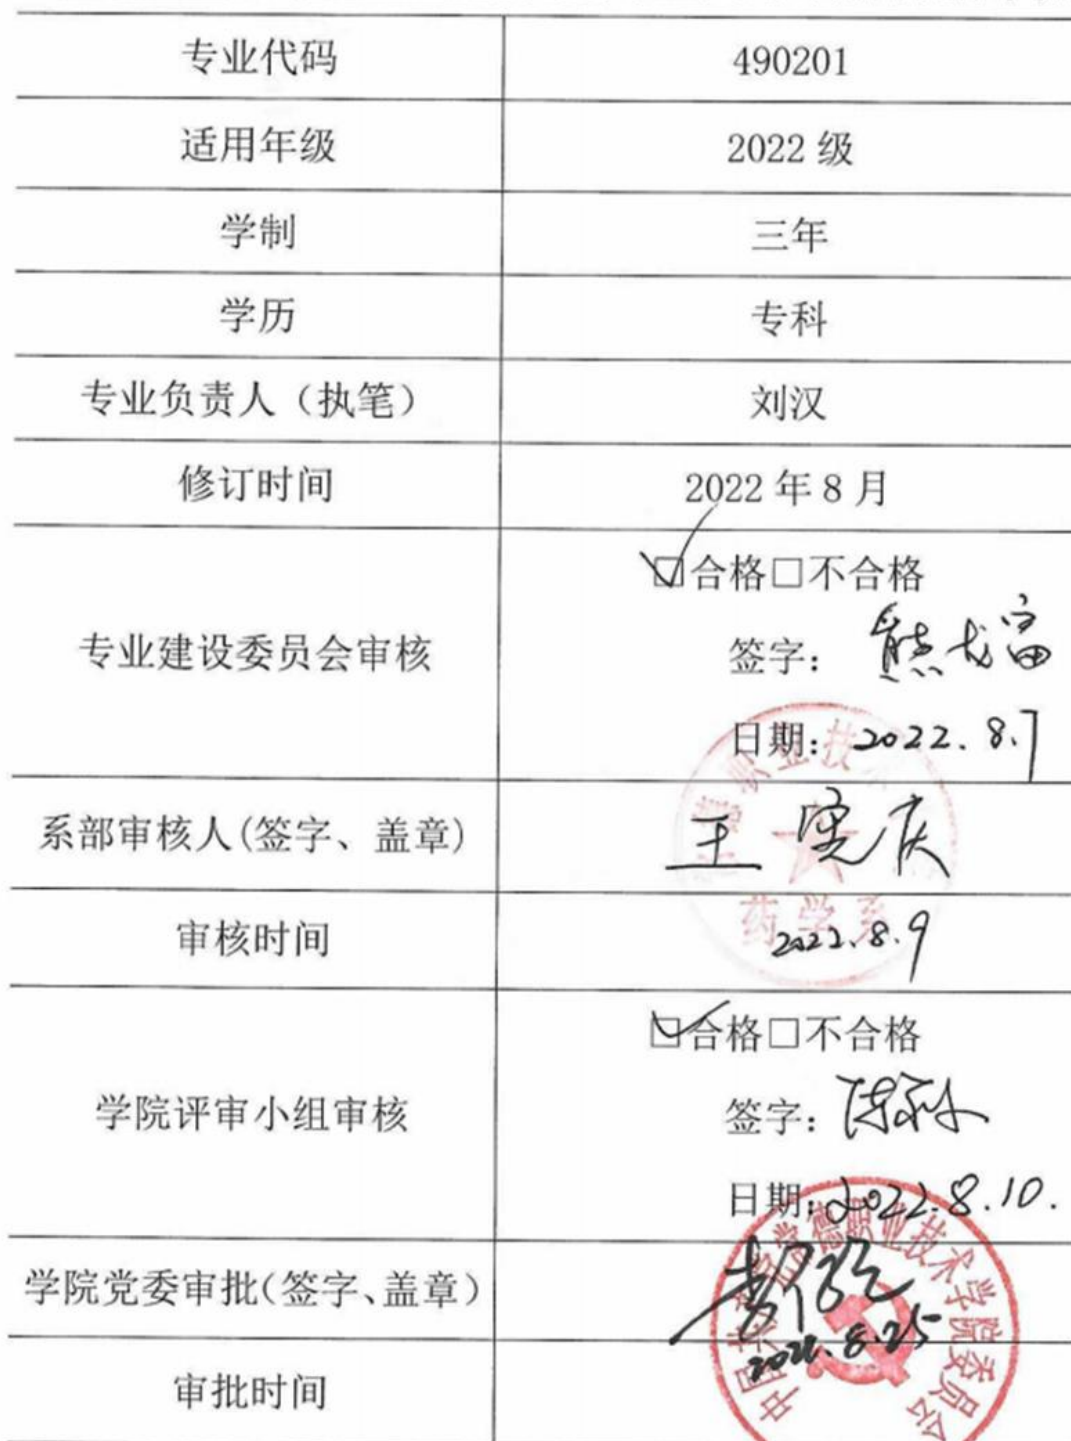 专业代码
490201
适用年级
2022 级
学制
三年
学历
专科
专业负责人（执笔）
刘汉
修订时间
2022 年 8 月
专业建设委员会审核
☑合格□不合格
签字：
日期：2022.8.7
系部审核人(签字、盖章)
王
药学系
审核时间
2022.8.9
学院评审小组审核
☑合格□不合格
签字：
日期：2022.8.10.
学院党委审批(签字、盖章)
2022.8.25
审批时间